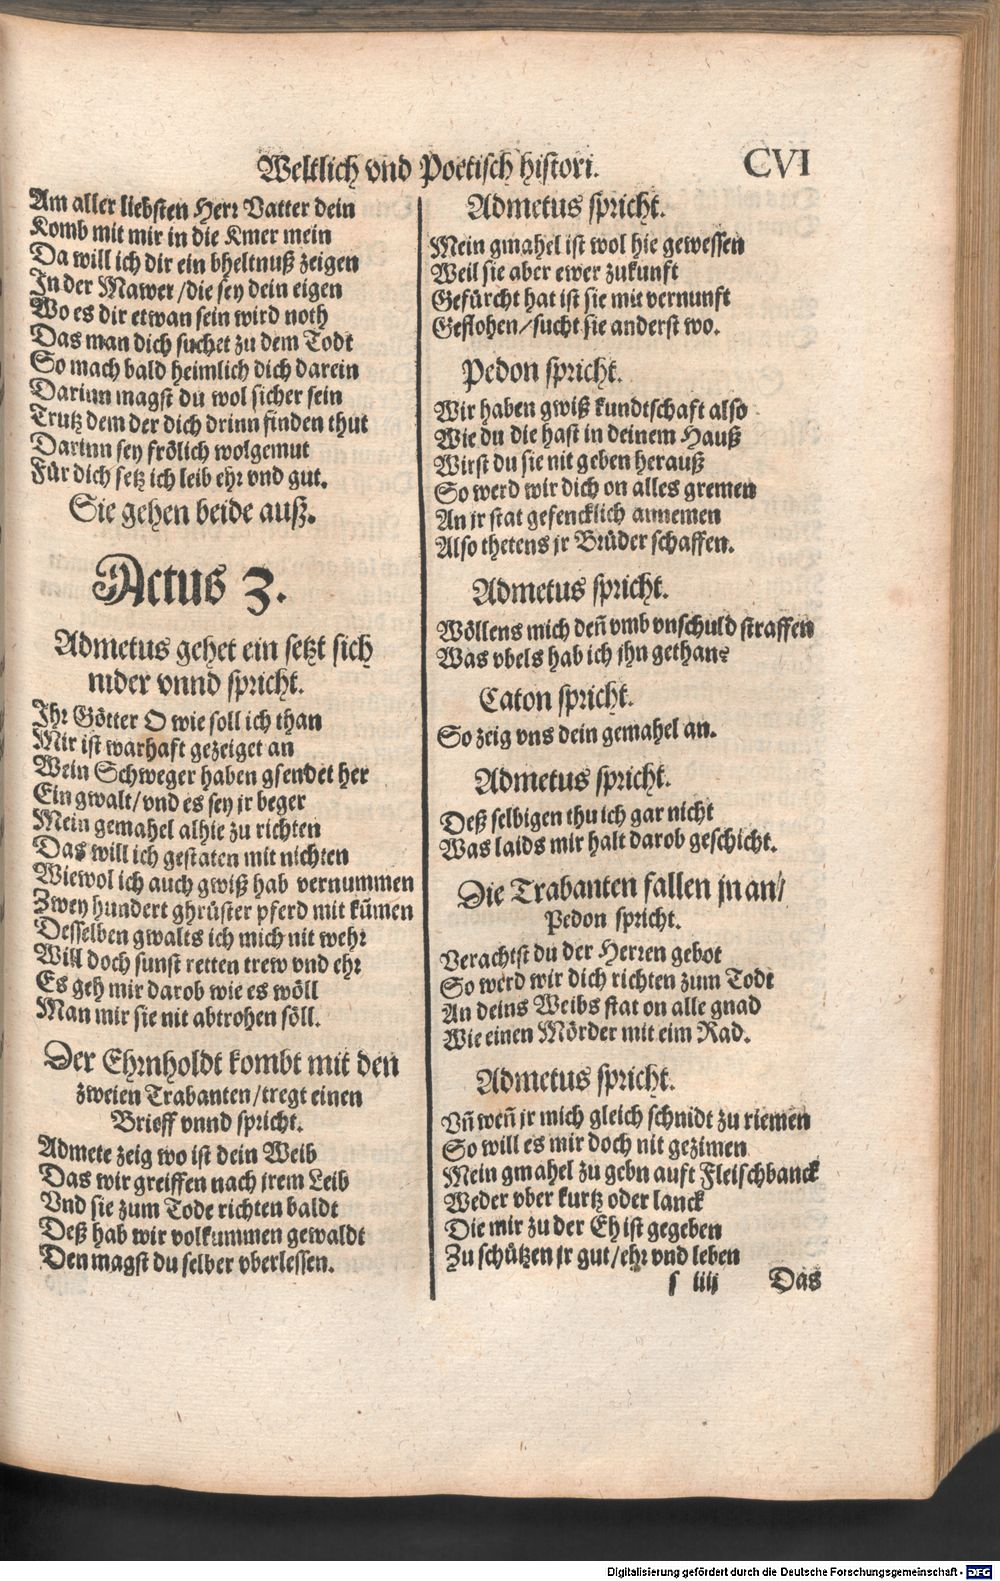 Weltlich vnd Poetisch histori. CVI
Am aller liebsten Herr Vatter dein
Komb mit mir in die Kmer mein
Da will ich dir ein bheltnuß zeigen
In der Mawer/die sey dein eigen
Wo es dir etwan sein wird noth
Das man dich suchet zu dem Todt
So mach bald heimlich dich darein
Darinn magst du wol sicher sein
Trutz dem der dich drinn finden thut
Darinn sey frölich wolgemut
Für dich setz ich leib ehr vnd gut.
Sie gehen beide auß.
Actus 3.
Admetus gehet ein setzt sich
nider vnnd spricht.
Ihr Götter O wie soll ich than
Mir ist warhaft gezeiget an
Wein Schweger haben gsendet her
Ein gwalt/vnd es sey jr beger
Mein gemahel alhie zu richten
Das will ich gestaten mit nichten
Wiewol ich auch gwiß hab vernummen
Zwey hundert ghrüster pferd mit kũmen
Desselben gwalts ich mich nit wehr
Will doch sunst retten trew vnd ehr
Es geh mir darob wie es wöll
Man mir sie nit abtrohen söll.
Der Ehrnholdt kombt mit den
zweien Trabanten/tregt einen
Brieff vnnd spricht.
Admete zeig wo ist dein Weib
Das wir greiffen nach jrem Leib
Vnd sie zum Tode richten baldt
Deß hab wir volkummen gewaldt
Den magst du selber vberlessen.
Admetus spricht.
Mein gmahel ist wol hie gewessen
Weil sie aber ewer zukunft
Gefürcht hat ist sie mit vernunft
Geflohen/sucht sie anderst wo.
Pedon spricht.
Wir haben gwiß kundtschaft also
Wie du die hast in deinem Hauß
Wirst du sie nit geben herauß
So werd wir dich on alles gremen
An jr stat gefencklich annemen
Also thetens jr Brüder schaffen.
Admetus spricht.
Wöllens mich deñ vmb vnschuld straffen
Was vbels hab ich jhn gethan?
Caton spricht.
So zeig vns dein gemahel an.
Admetus spricht.
Deß selbigen thu ich gar nicht
Was laids mir halt darob geschicht.
Die Trabanten fallen jn an/
Pedon spricht.
Verachtst du der Herren gebot
So werd wir dich richten zum Todt
An deins Weibs stat on alle gnad
Wie einen Mörder mit eim Rad.
Admetus spricht.
Vñ weñ jr mich gleich schnidt zu riemen
So will es mir doch nit gezimen
Mein gmahel zu gebn auft Fleischbanck
Weder vber kurtz oder lanck
Die mir zu der Eh ist gegeben
Zu schützen jr gut/ehr vnd leben
s iiij Das
Digitalisierung gefördert durch die Deutsche Forschungsgemeinschaft - DFG